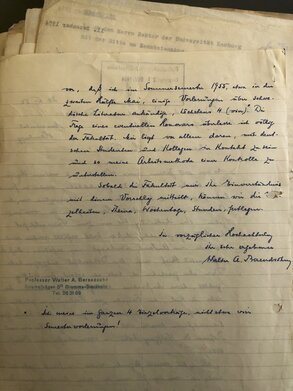 den Herrn Rektor der Universität Hamburg
vor, daß ich im Sommersemester 1955, etwa in der
zweiten Hälfte Mai, einige Vorlesungen über schwe-
dische Literatur ankündige, höchstens 4 (vier). Die
Frage eines eventuellen Honorars überlasse ich völlig
der Fakultät. Mir liegt vor allem daran, mit deut-
schen Studenten und Kollegen in Kontakt zu sein
und so meine Arbeitsmethode einer Kontrolle zu
unterstellen.
Sobald die Fakultät mir ihr Einverständnis
mit diesem Vorschlag mitteilt, können wir die
zeiten, Thema, Wochentage, Stunden, festlegen.
In vorzüglicher Hochachtung
Ihr sehr ergebener
Walter A. Berendsohn
Professor Walter A. Berendsohn
Bromma-Stockholm
Tel.
im ganzen 4 Einzelvorträge, nicht etwa vier
Semestervorlesungen!